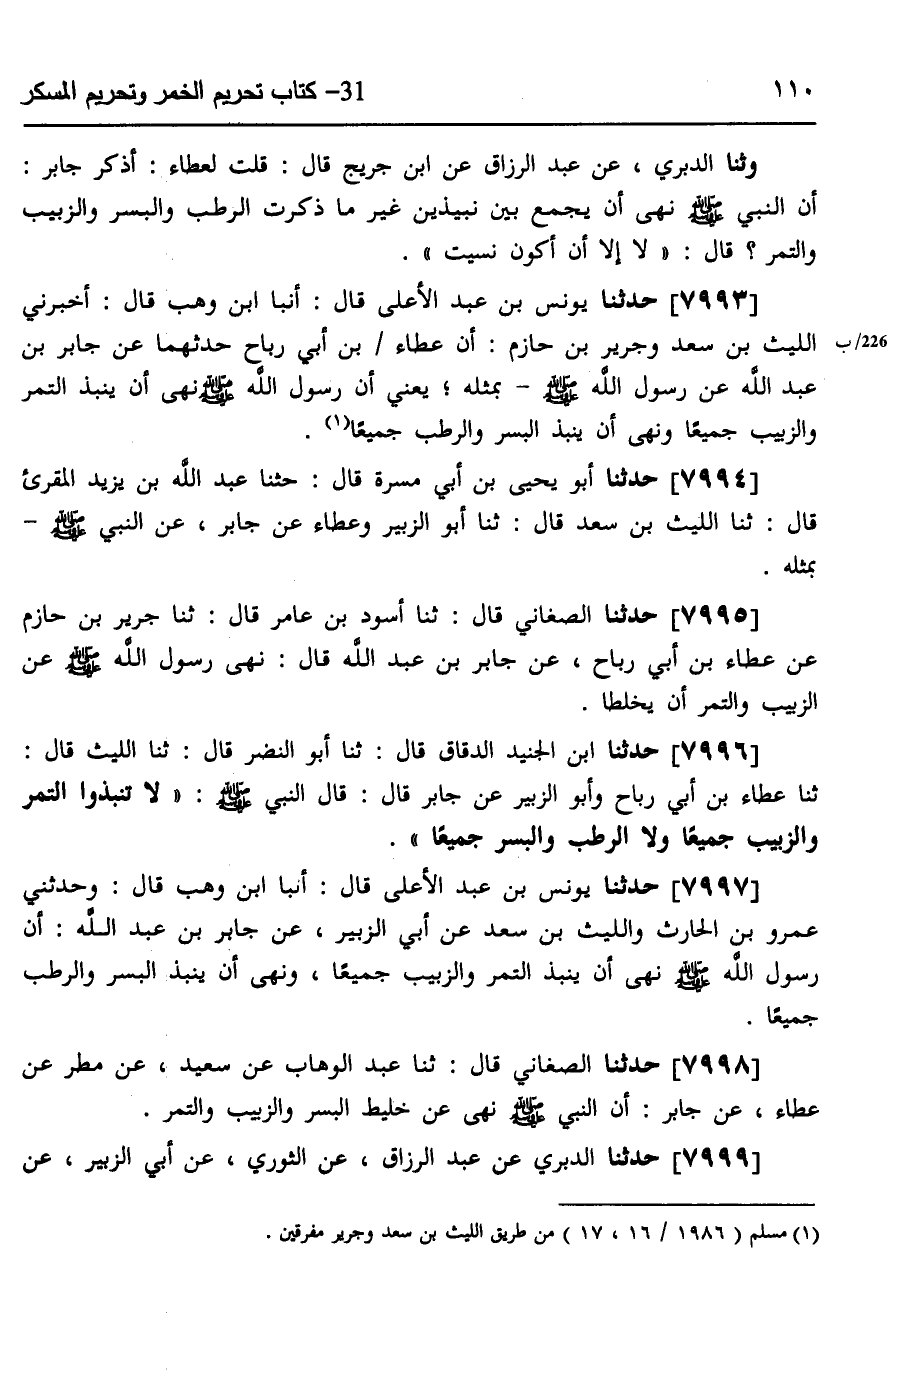 ١١٠ 31- كتاب تحريم الخمر وتحريم المسكر
وثنا الدبري ، عن عبد الرزاق عن ابن جريج قال : قلت لعطاء : أذكر جابر :
أن النبي ﷺ نهى أن يجمع بين نبيذين غير ما ذكرت الرطب والبسر والزبيب
والتمر ؟ قال : « لا إلا أن أكون نسيت » .
[٧٩٩٣] حدثنا يونس بن عبد الأعلى قال : أنبا ابن وهب قال : أخبرني
226/ب الليث بن سعد وجرير بن حازم : أن عطاء / بن أبي رباح حدثهما عن جابر بن
عبد اللَّه عن رسول اللَّه ﷺ - بمثله ؛ يعني أن رسول اللَّه ﷺنهى أن ينبذ التمر
والزبيب جميعًا ونهى أن ينبذ البسر والرطب جميعًا(١) .
[٧٩٩٤] حدثنا أبو يحيى بن أبي مسرة قال : حثنا عبد اللَّه بن يزيد المقرئ
قال : ثنا الليث بن سعد قال : ثنا أبو الزبير وعطاء عن جابر ، عن النبي ﷺ -
بمثله .
[٧٩٩٥] حدثنا الصغاني قال : ثنا أسود بن عامر قال : ثنا جرير بن حازم
عن عطاء بن أبي رباح ، عن جابر بن عبد اللَّه قال : نهى رسول اللَّه ﷺ عن
الزبيب والتمر أن يخلطا .
[٧٩٩٦] حدثنا ابن الجنيد الدقاق قال : ثنا أبو النضر قال : ثنا الليث قال :
ثنا عطاء بن أبي رباح وأبو الزبير عن جابر قال : قال النبي ﷺ : « لا تنبذوا التمر
والزبيب جميعًا ولا الرطب والبسر جميعًا » .
[٧٩٩٧] حدثنا يونس بن عبد الأعلى قال : أنبا ابن وهب قال : وحدثني
عمرو بن الحارث والليث بن سعد عن أبي الزبير ، عن جابر بن عبد اللَّه : أن
رسول اللَّه ﷺ نهى أن ينبذ التمر والزبيب جميعًا ، ونهى أن ينبذ البسر والرطب
جميعًا .
[٧٩٩٨] حدثنا الصغاني قال : ثنا عبد الوهاب عن سعيد ، عن مطر عن
عطاء ، عن جابر : أن النبي ﷺ نهى عن خليط البسر والزبيب والتمر .
[٧٩٩٩] حدثنا الدبري عن عبد الرزاق ، عن الثوري ، عن أبي الزبير ، عن
(١) مسلم ( ١٩٨٦ / ١٦ ، ١٧ ) من طريق الليث بن سعد وجرير مفرقين .